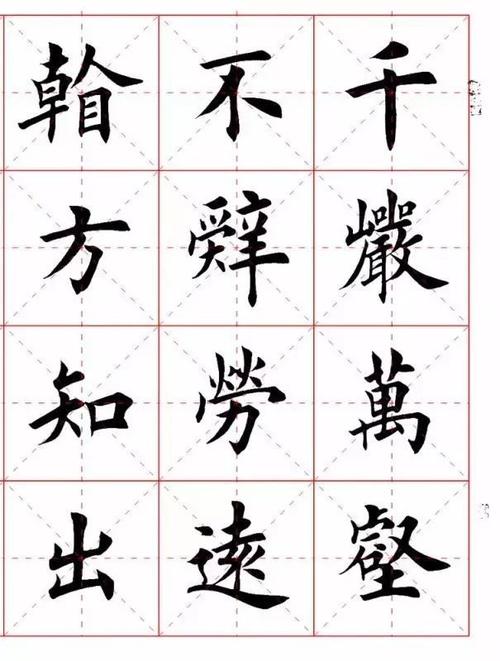 千巗萬壑
不辭勞遠
方知出